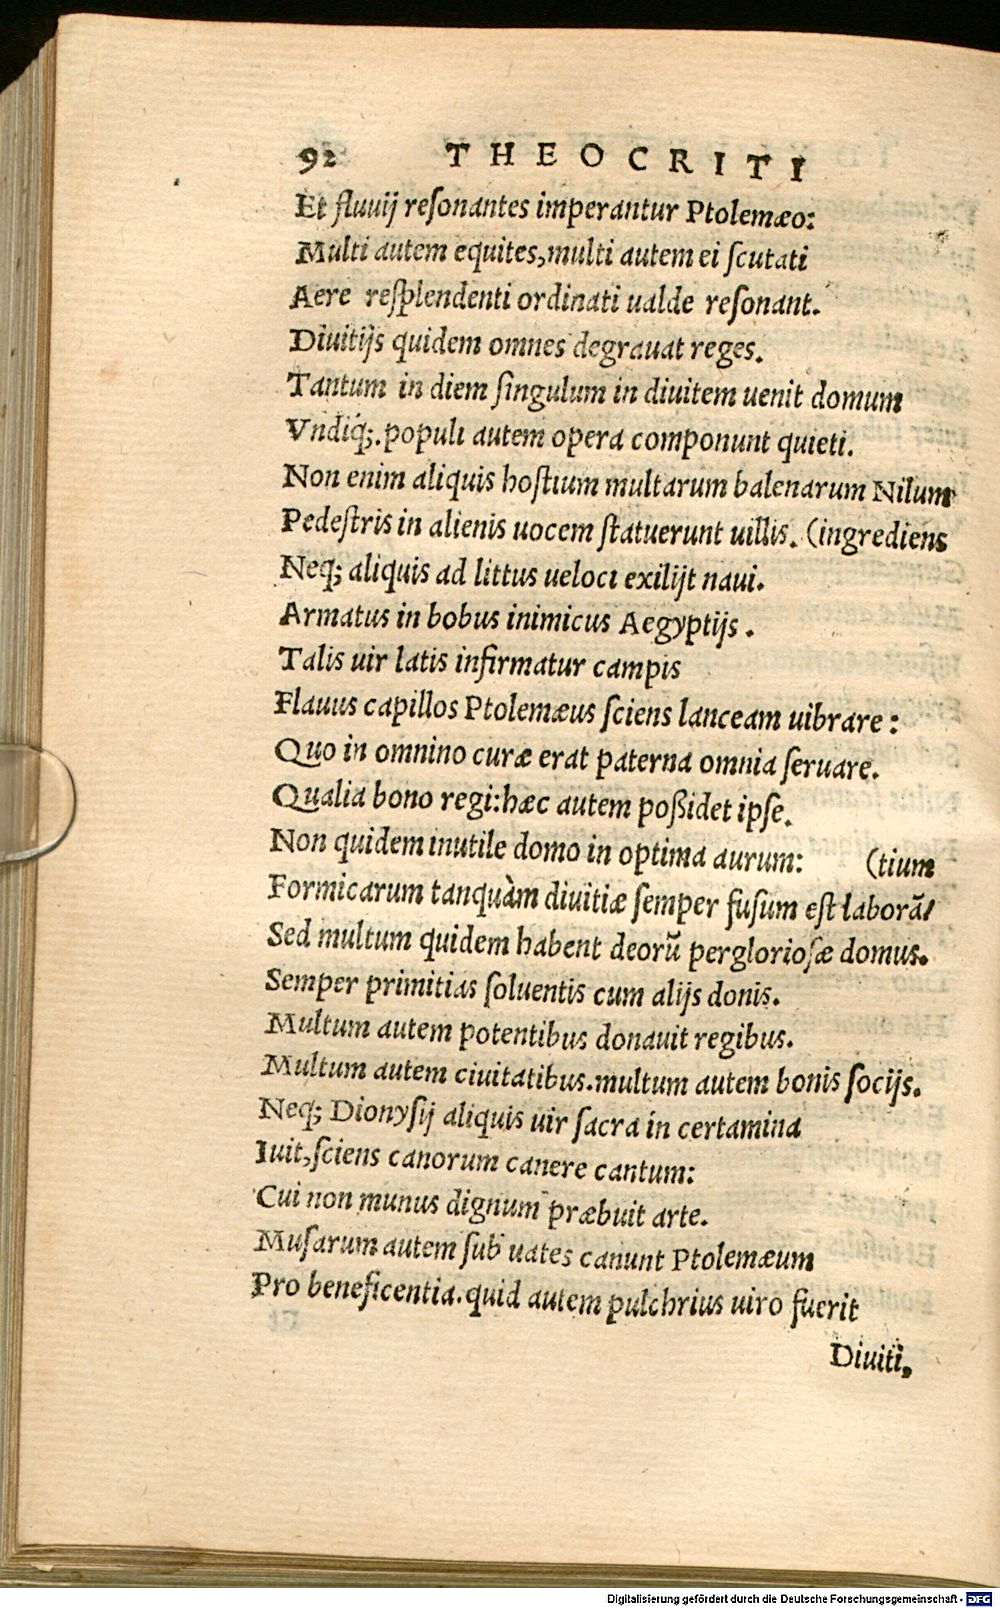 92 THEOCRITI
Et fluuij reſonantes imperantur Ptolemæo:
Multi autem equites, multi autem ei ſcutati
Aere reſplendenti ordinati ualde reſonant.
Diuitijs quidem omnes degrauat reges.
Tantum in diem ſingulum in diuitem uenit domum
Vndiq;. populi autem opera componunt quieti.
Non enim aliquis hoſtium multarum balenarum Nilum
Pedeſtris in alienis uocem ſtatuerunt uillis. (ingrediens
Neq; aliquis ad littus ueloci exilijt naui.
Armatus in bobus inimicus Aegyptijs.
Talis uir latis infirmatur campis
Flauus capillos Ptolemæus ſciens lanceam uibrare:
Quo in omnino curæ erat paterna omnia ſeruare.
Qualia bono regi: hæc autem poßidet ipſe.
Non quidem inutile domo in optima aurum: (tium
Formicarum tanquàm diuitiæ ſemper fuſum eſt laborã/
Sed multum quidem habent deorũ perglorioſæ domus.
Semper primitias ſoluentis cum alijs donis.
Multum autem potentibus donauit regibus.
Multum autem ciuitatibus. multum autem bonis ſocijs.
Neq; Dionyſij aliquis uir ſacra in certamina
Iuit, ſciens canorum canere cantum:
Cui non munus dignum præbuit arte.
Muſarum autem ſub uates canunt Ptolemæum
Pro beneficentia. quid autem pulchrius uiro fuerit
Diuiti,
Digitalisierung gefördert durch die Deutsche Forschungsgemeinschaft - DFG